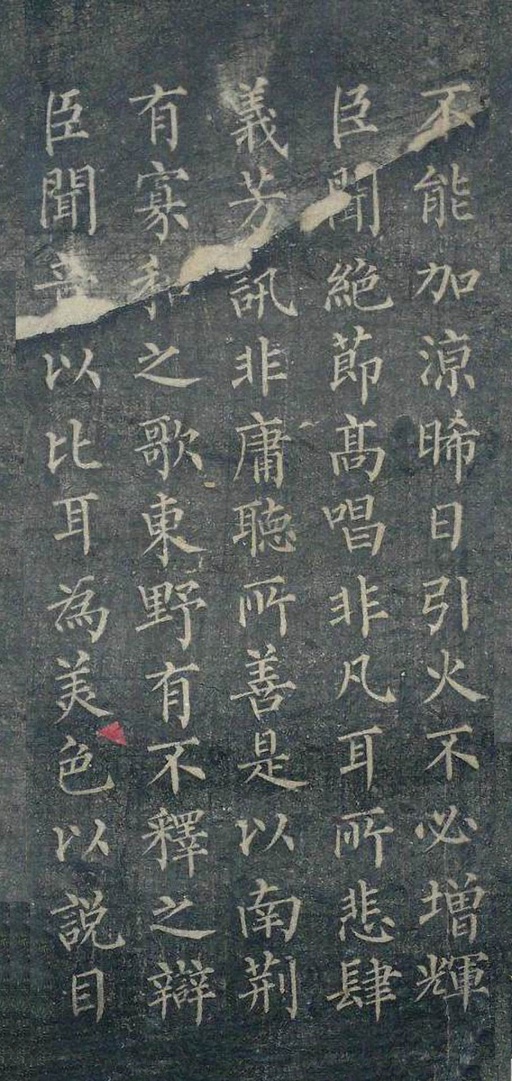 不能加涼晞日引火不必增輝
臣聞絶節髙唱非凡耳所悲肆
義芳訊非庸聽所善是以南荆
有寡和之歌東野有不釋之辯
臣聞音以比耳為美色以説目